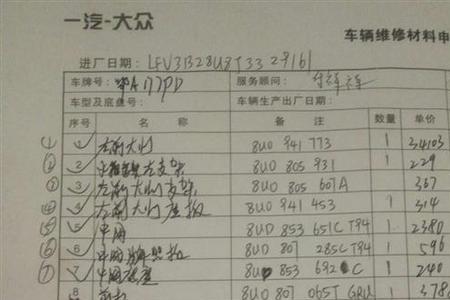 一汽-大众
车辆维修材料申
进厂日期: LFV3B28U8T3329161
车牌号: A177PD 服务顾问:
车型及底盘号: 车辆生产出厂日期:
序号 名称 备注 数量 单价
① 1 左前大灯 8U0 941 773 1 34103
② 2 左支架 8U0 805 931 1 229
③ 3 左前大灯支架 8U0 805 607A 367
④ 4 左前大灯底板 8U0 941 453 1 314
⑤ 5 中网 8UD 853 651C T94 2380
⑥ 6 中网 8UD 807 285C T94 1 596
⑦ 7 中网 8U 853 692 C 1 240
8 8U0 807 065T GRU 1 378